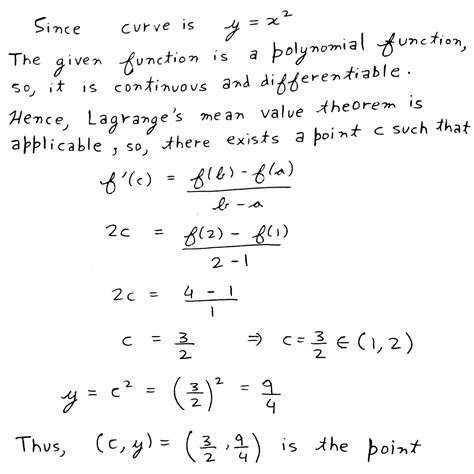 Since curve is y = x²
The given function is a polynomial function,
so, it is continuous and differentiable.
Hence, Lagrange's mean value theorem is
applicable, so, there exists a point c such that
f'(c) = f(b) - f(a) / b - a
2c = f(2) - f(1) / 2 - 1
2c = 4 - 1 / 1
c = 3/2 ⇒ c = 3/2 ∈ (1, 2)
y = c² = (3/2)² = 9/4
Thus, (c, y) = (3/2, 9/4) is the point